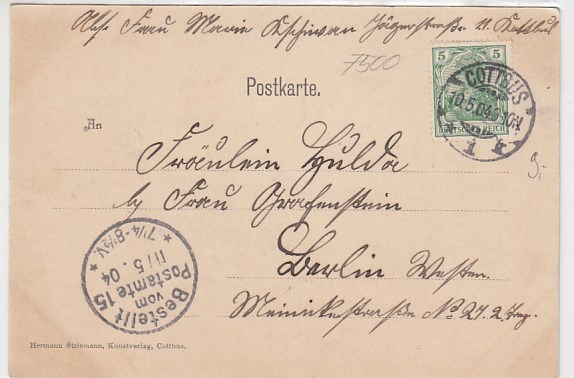 Abs. Frau Marie Kschiwan Jägerstraße 11. Kottbus
7500
5 5
DEUTSCHES REICH
COTTBUS
10.5.04. 9-10N.
1
Postkarte.
An
Fräulein Hulda
by Frau Grafenstein
Berlin Westen.
Meinikestraße No 27. 2. Trg.
9,-
Bestellt
vom
Postamte 15
11/5. 04
7¼-8½V.
Hermann Striemann, Kunstverlag, Cottbus.